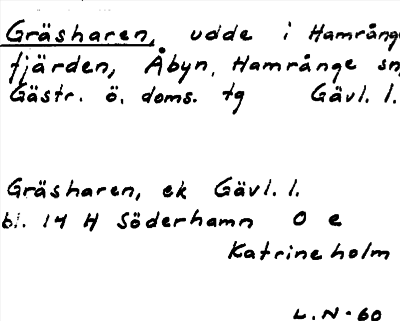 Gräsharen, udde i Hamrånge
fjärden, Åbyn, Hamrånge sn,
Gästr. ö. doms. tg Gävl. l.
Gräsharen, ek Gävl. l.
bl. 14 H Söderhamn O e
Katrineholm
L.N-60